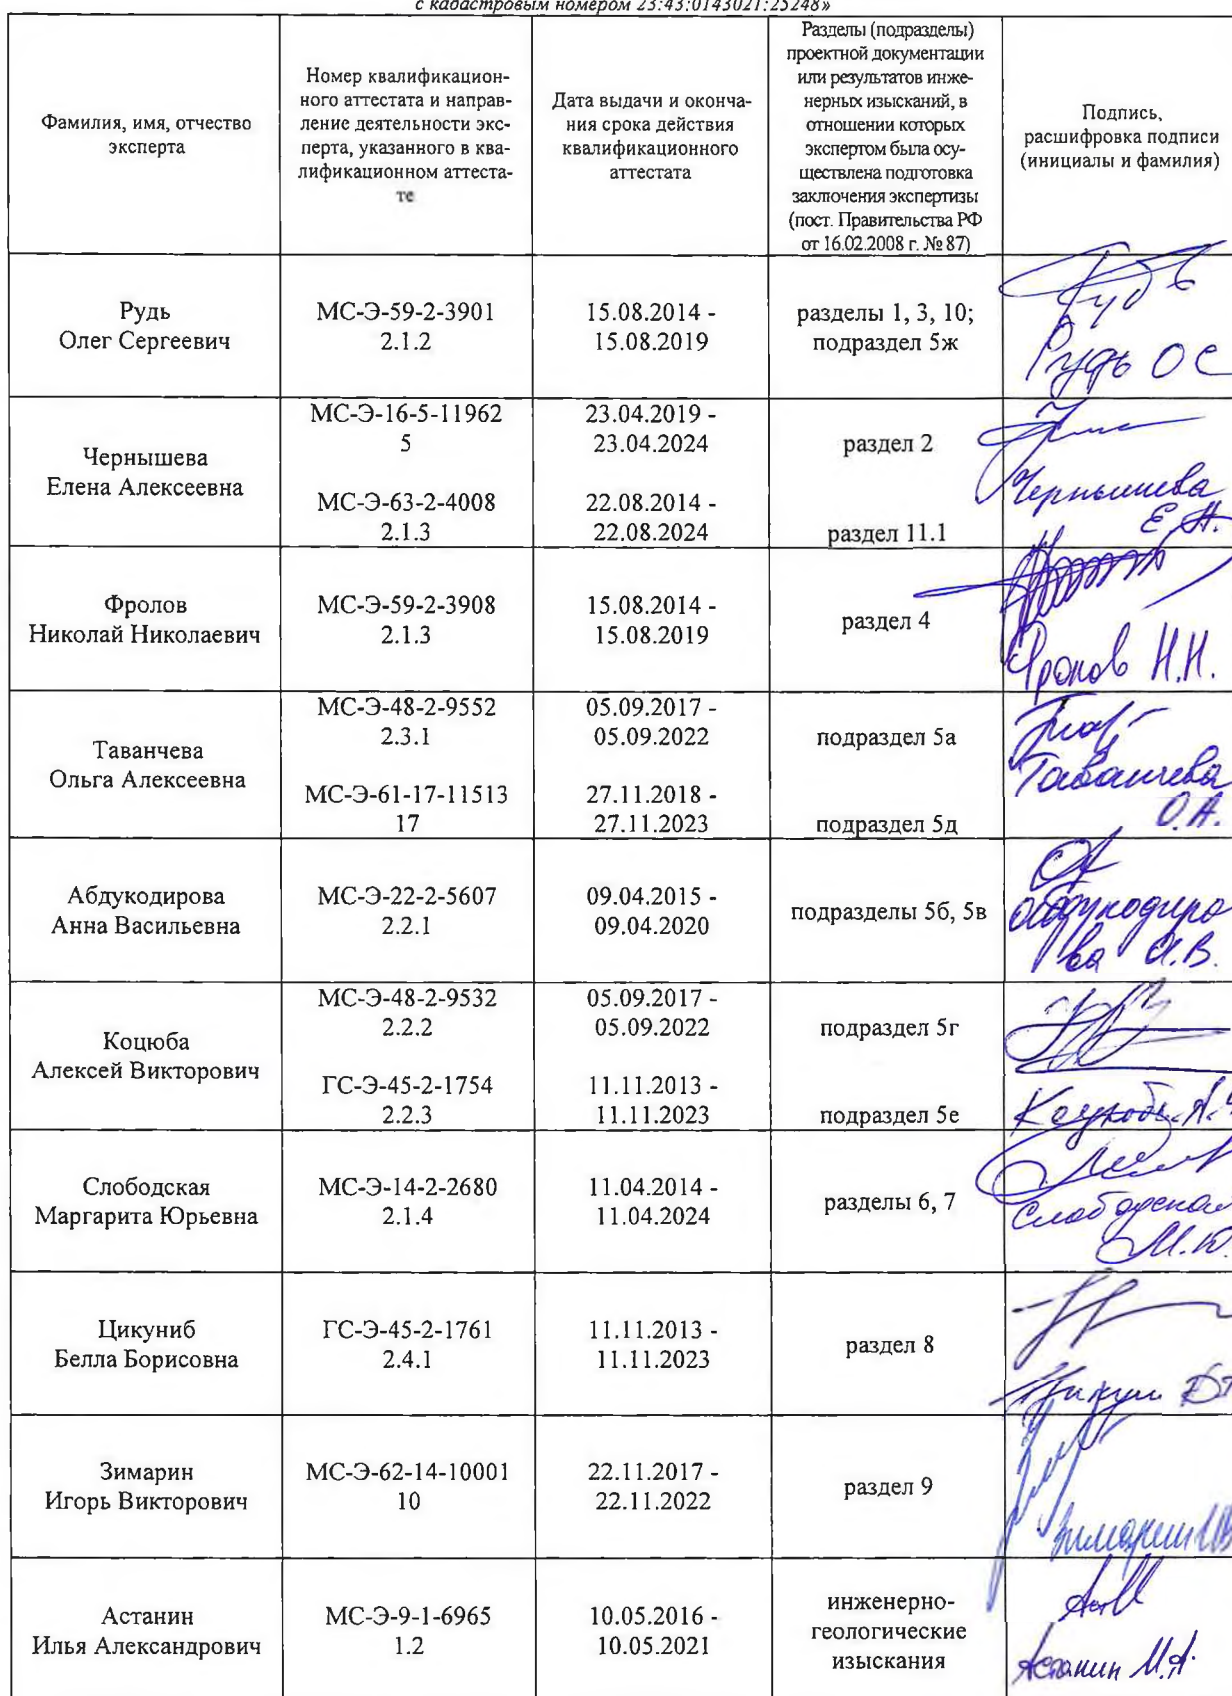 с кадастровым номером 23:43:0143021:25248»
Фамилия, имя, отчество
эксперта
Номер квалификацион-
ного аттестата и направ-
ление деятельности экс-
перта, указанного в ква-
лификационном аттеста-
те
Дата выдачи и оконча-
ния срока действия
квалификационного
аттестата
Разделы (подразделы)
проектной документации
или результатов инже-
нерных изысканий, в
отношении которых
экспертом была осу-
ществлена подготовка
заключения экспертизы
(пост. Правительства РФ
от 16.02.2008 г. № 87)
Подпись,
расшифровка подписи
(инициалы и фамилия)
Рудь
Олег Сергеевич
МС-Э-59-2-3901
2.1.2
15.08.2014 -
15.08.2019
разделы 1, 3, 10;
подраздел 5ж
Рудь ОС
Чернышева
Елена Алексеевна
МС-Э-16-5-11962
5
МС-Э-63-2-4008
2.1.3
23.04.2019 -
23.04.2024
22.08.2014 -
22.08.2024
раздел 2
раздел 11.1
Чернышева
Е.А.
Фролов
Николай Николаевич
МС-Э-59-2-3908
2.1.3
15.08.2014 -
15.08.2019
раздел 4
Фролов Н.Н.
Таванчева
Ольга Алексеевна
МС-Э-48-2-9552
2.3.1
МС-Э-61-17-11513
17
05.09.2017 -
05.09.2022
27.11.2018 -
27.11.2023
подраздел 5а
подраздел 5д
Таванчева
О.А.
Абдукодирова
Анна Васильевна
МС-Э-22-2-5607
2.2.1
09.04.2015 -
09.04.2020
подразделы 5б, 5в
Абдукодиро
ва А.В.
Коцюба
Алексей Викторович
МС-Э-48-2-9532
2.2.2
ГС-Э-45-2-1754
2.2.3
05.09.2017 -
05.09.2022
11.11.2013 -
11.11.2023
подраздел 5г
подраздел 5е
Коцюба А.
Слободская
Маргарита Юрьевна
МС-Э-14-2-2680
2.1.4
11.04.2014 -
11.04.2024
разделы 6, 7
Слободская
М.Ю.
Цикуниб
Белла Борисовна
ГС-Э-45-2-1761
2.4.1
11.11.2013 -
11.11.2023
раздел 8
Зимарин
Игорь Викторович
МС-Э-62-14-10001
10
22.11.2017 -
22.11.2022
раздел 9
Зимарин ИВ
Астанин
Илья Александрович
МС-Э-9-1-6965
1.2
10.05.2016 -
10.05.2021
инженерно-
геологические
изыскания
Астанин И.А.